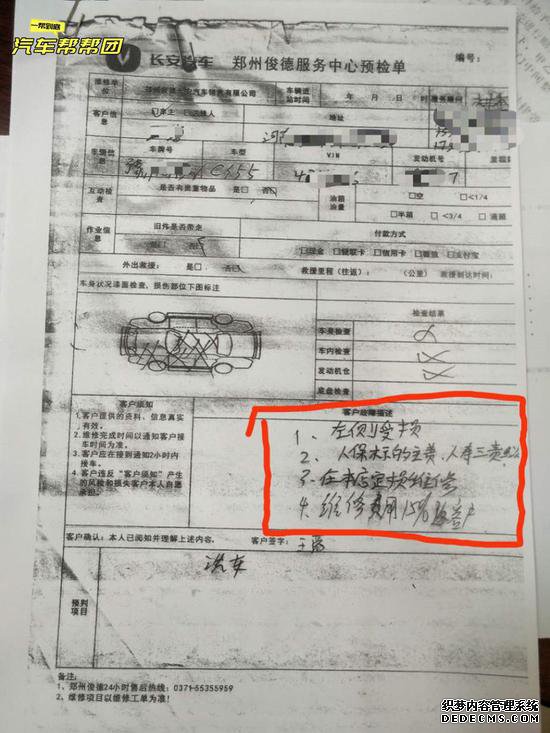 一帮到底
汽车帮帮团
长安汽车 郑州俊德服务中心预检单 编号：
维修单位 汽车销售有限公司 车辆进站时间 年 月 日 时 服务顾问
客户信息 地址
车辆信息 车牌号 车型 VIN 发动机号 里程
互动检查 是否有贵重物品 是□ 否 油箱油量 □空 □<1/4
□半箱 □<3/4 □满箱
作业信息 旧件是否带走 付款方式
□现金 □银联卡 □信用卡 □微信 □支付宝
外出救援： 是□ 否 救援里程（往返）： （公里） 救援到达时间：
车身状况漆面检查，损伤部位下图标注
检查结果
车身检查
车内检查
发动机仓
底盘检查
客户须知 客户故障描述
1.客户提供的资料、信息真实有效。
2.维修完成时间以通知客户接车时间为准。
3.客户应在接到通知2小时内接车。
4.客户违反“客户须知”产生的风险和损失客户本人自愿承担。
1、左侧受损
2、人保 主责、人寿三责
3、在我店定损维修
4、维修费用15% 客户
客户确认：本人已阅知并理解上述内容。 客户签字：
洗车
预判项目
备注：
1、郑州俊德24小时售后热线：0371-55355959
2、维修项目以维修工单为准！
织梦内容管理系统
DEDECMS.COM